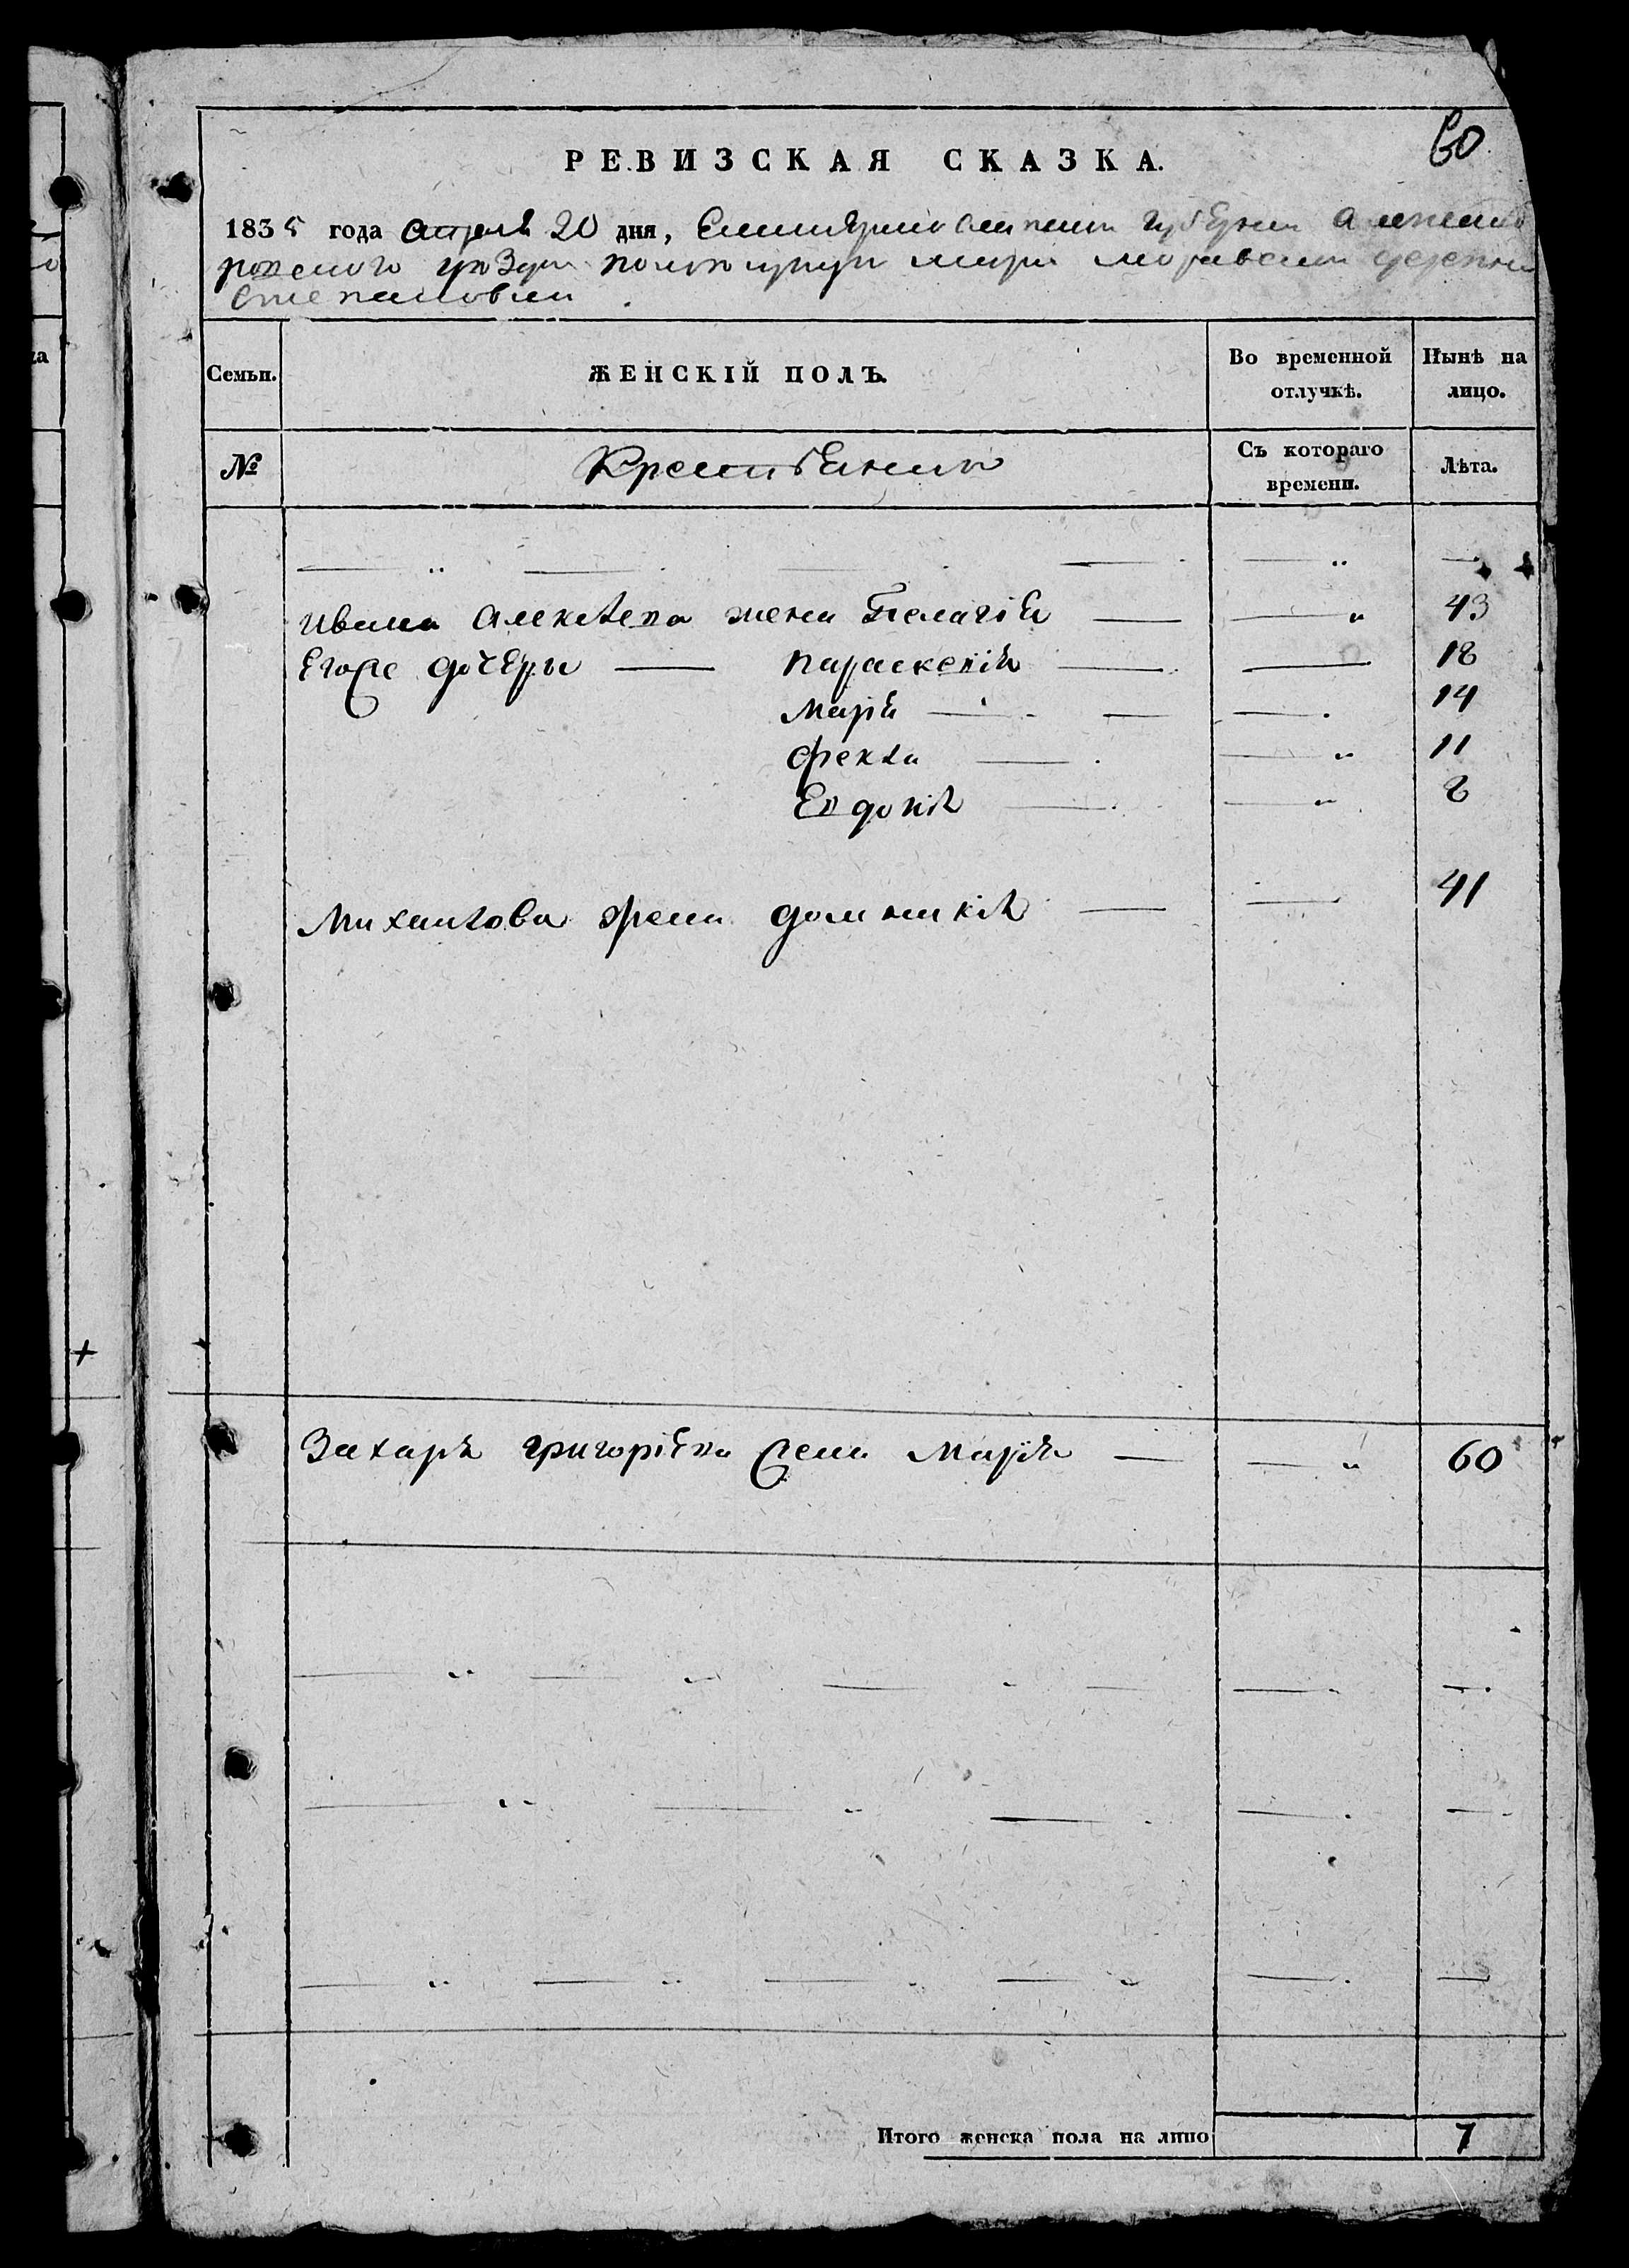 60
РЕВИЗСКАЯ СКАЗКА.
1835 года апреля 20 дня, Екатеринославской губернии Александ
ровского уезда деревни
Степановки
Семьи.
ЖЕНСКІЙ ПОЛЪ.
Во временной отлучкѣ.
Нынѣ на лицо.
№
Съ котораго времени.
Лѣта.
Ивана Алексѣева жена Пелагія 43
Егоже дочеры Параскевія 18
Марія 14
Фекла 11
Евдокія 8
Михайлова жена Домникія 41
Захаря Григоріева жена Марія 60
Итого женска пола на лицо 7